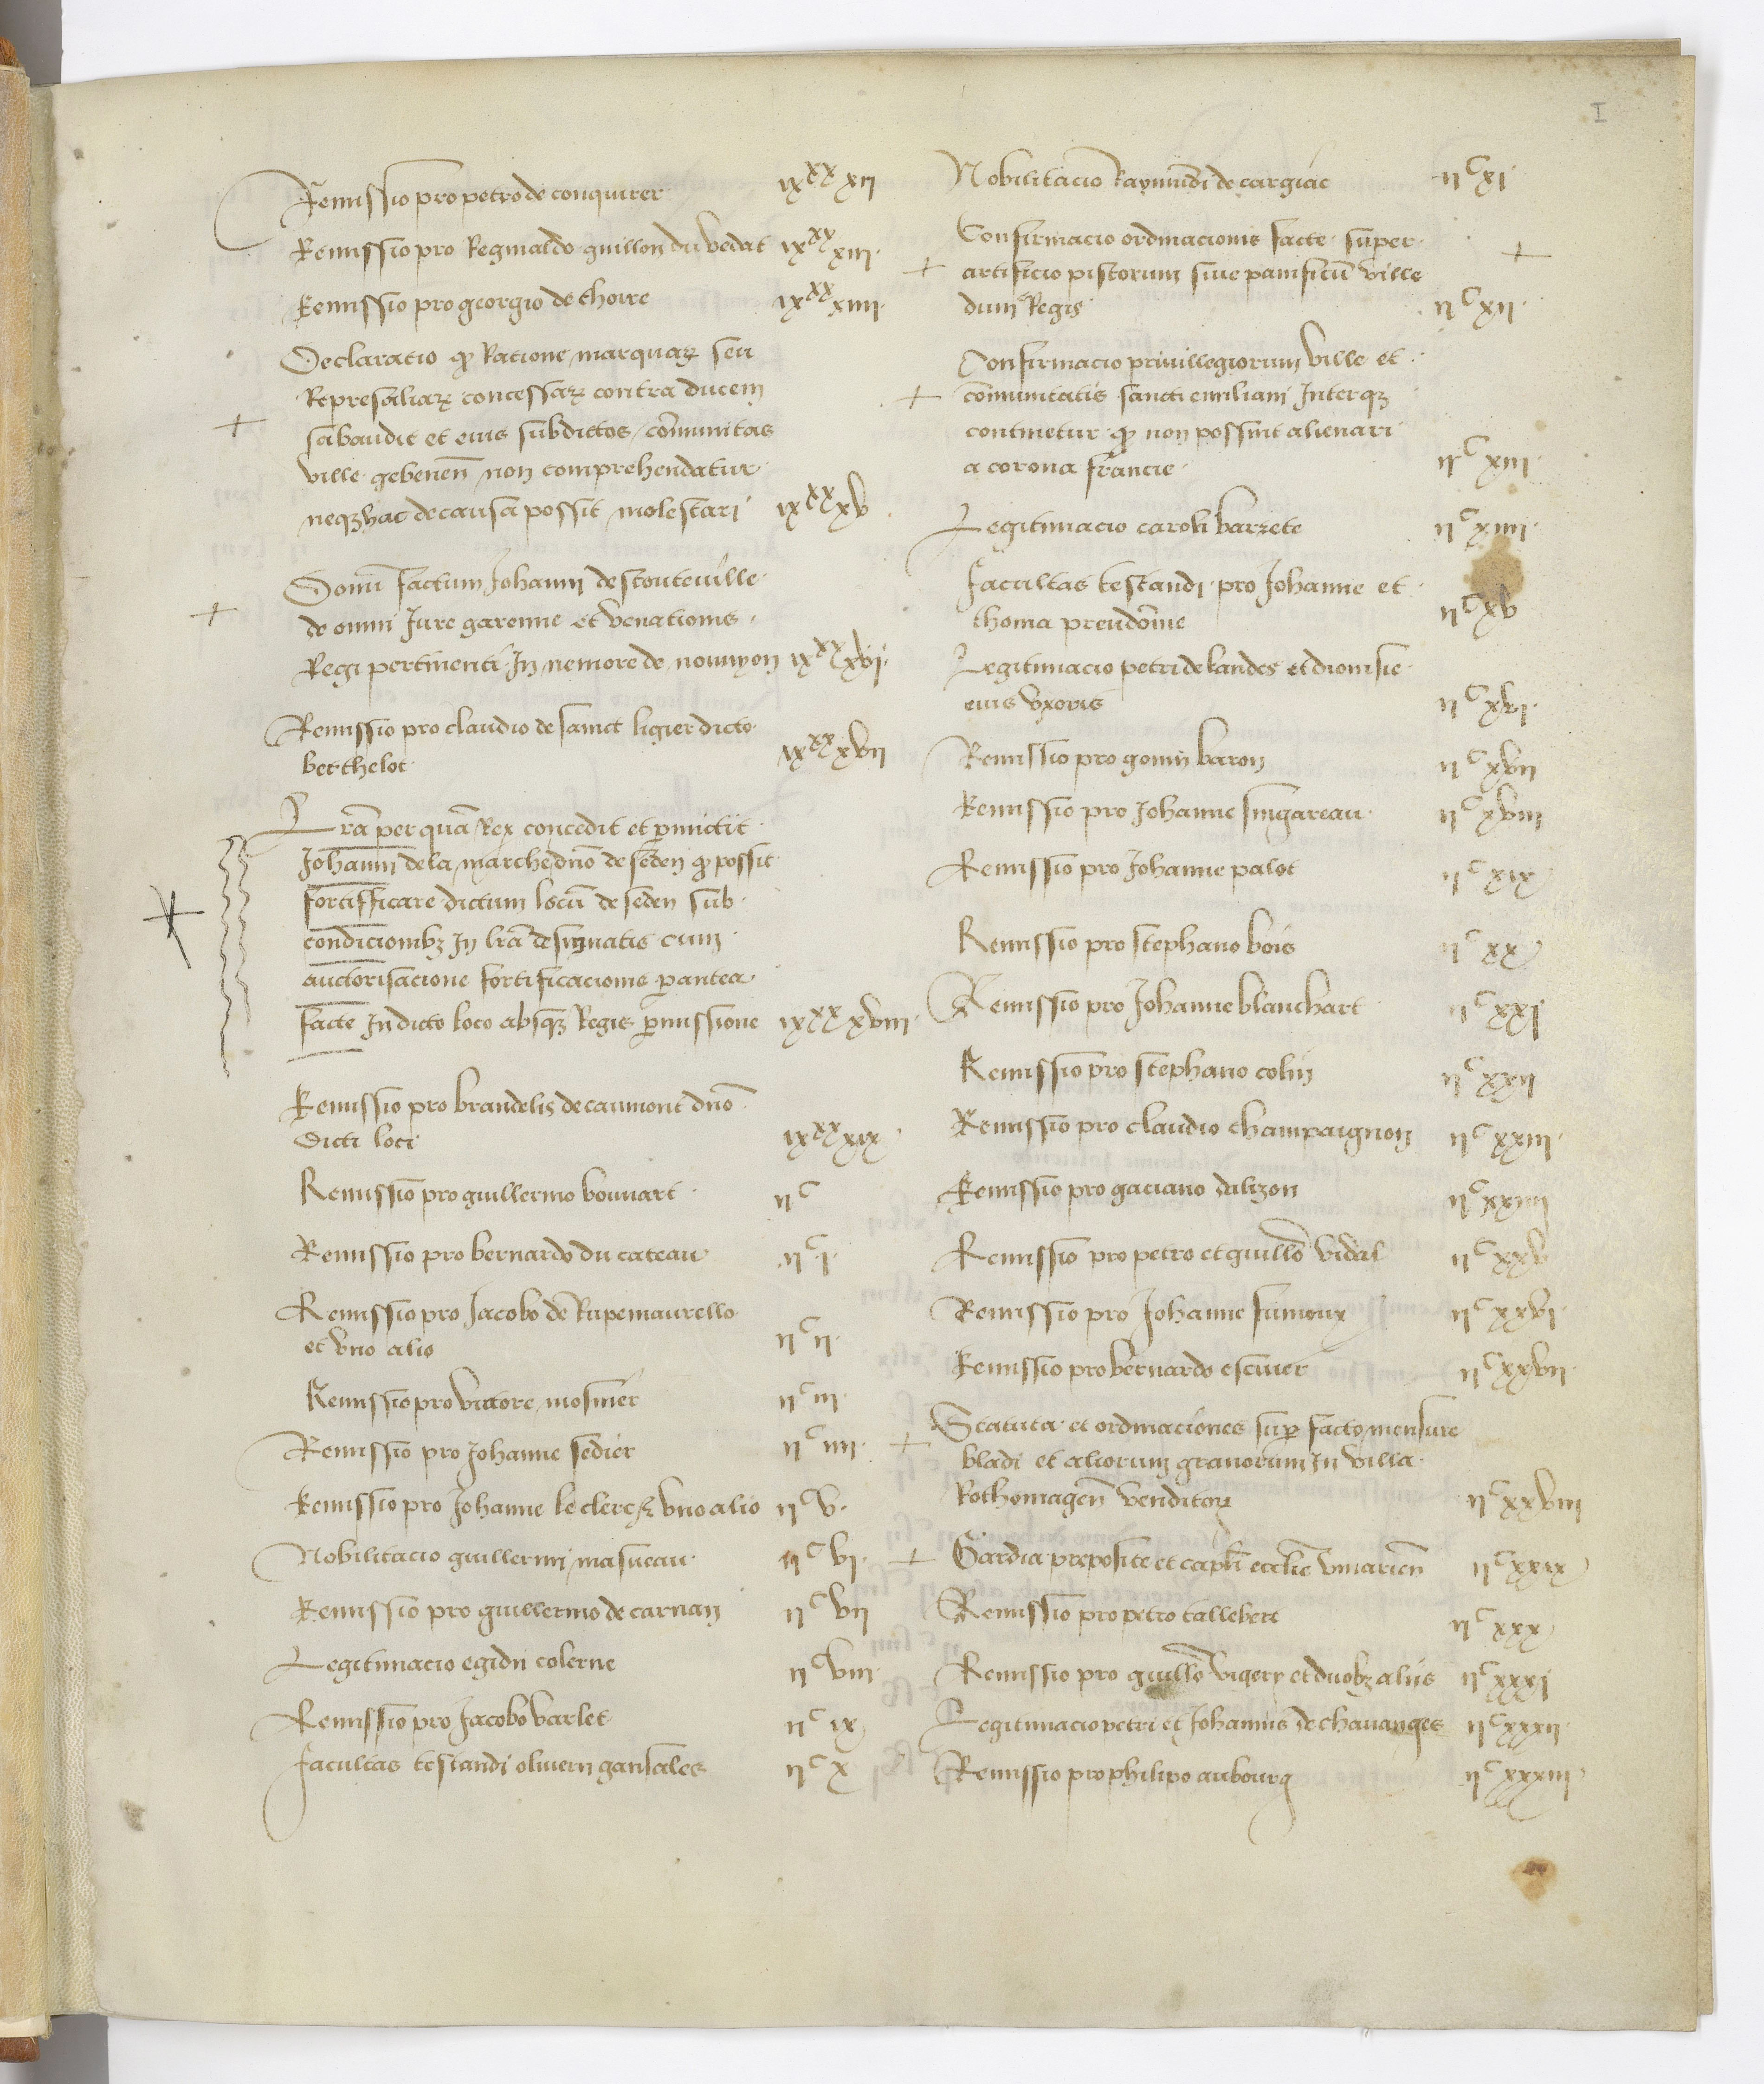 I
Remissio pro petro de conquirer ixxx xii
Remissio pro Reginaldo guillon du vedat ixxx xiii
Remissio pro georgio de thoire ixxx xiiii
Declaratio qꝫ Ratione marquaꝝ seu
Represaliaꝝ concessaꝝ contra ducem
sabaudie et eius subdictos cōmunitas
ville gebenen̄ non comprehendatur
neqꝫ hac de causa possit molestari ixxx xv
Donū factum Johanni destouteville
de omni Jure garenne et venationis
Regi pertinenti In nemore de nouuyon ixxx xvi
Remissio pro claudio de sainct ligier dicto
berthelot ixxx xvii
Lrā per quā Rex concedit et ꝑmictit
Johanni de la marche dnō de seden qꝫ possit
fortifficare dictum locū de seden sub
condicionibꝫ In lrā designatis cum
auctorisacione fortificacionis ꝑantea
facte In dicto loco absqꝫ Regis ꝑmissione ixxx xviii
Remissio pro brandelis de caumont dnō
dicti loci ixxx xix
Remissio pro guillermo bouuart iic
Remissio pro bernardo du cateau iic i
Remissio pro Jacobo de Rupemaurello
et vno alio iic ii
Remissio pro victore mosnier iic iii
Remissio pro Johanne sedier iic iiii
Remissio pro Johanne le clerc & vno alio iic v
Nobilitacio guillermi masueau iic vi
Remissio pro guillermo de carnan iic vii
Legitimacio egidii colerne iic viii
Remissio pro Jacobo varlet iic ix
Facultas testandi oliuerii gansales iic x
Nobilitacio Raymūdi de cargiac iic xi
Confirmacio ordinacionis facte super
artificio pistorum siue panificū ville
dum Regis iic xii
Confirmacio priuillegiorum ville et
cōmunitatis sancti emiliani Interqꝫ
continetur qꝫ non possint alienari
a corona francie iic xiii
Legitimacio caroli barzete iic xiiii
Facultas testandi pro Johanne et
thoma preudōme iic xv
Legitimacio petri de landes et dionisie
eius vxoris iic xvi
Remissio pro gomin baron iic xvii
Remissio pro Johanne singareau iic xviii
Remissio pro Johanne palot iic xix
Remissio pro stephano bois iic xx
Remissio pro Johanne blanchart iic xxi
Remissio pro stephano colin iic xxii
Remissio pro claudio champaignon iic xxiii
Remissio pro gaciano dalizon iic xxiiii
Remissio pro petro et guillō vidal iic xxv
Remissio pro Johanne fumoux iic xxvi
Remissio pro bernardo escuier iic xxvii
Statuta et ordinaciones suꝑ facto mensure
bladi et aliorum granorum In villa
Rothomagen̄ venditoꝝ iic xxviii
Gardia preposite et caplī ecclie vinarien̄ iic xxix
Remissio pro petro tallebert iic xxx
Remissio pro guillō vigery et duobꝫ aliis iic xxxi
Legitimacio petri et Johannis de chauanges iic xxxii
Remissio pro philipo aubourg iic xxxiii